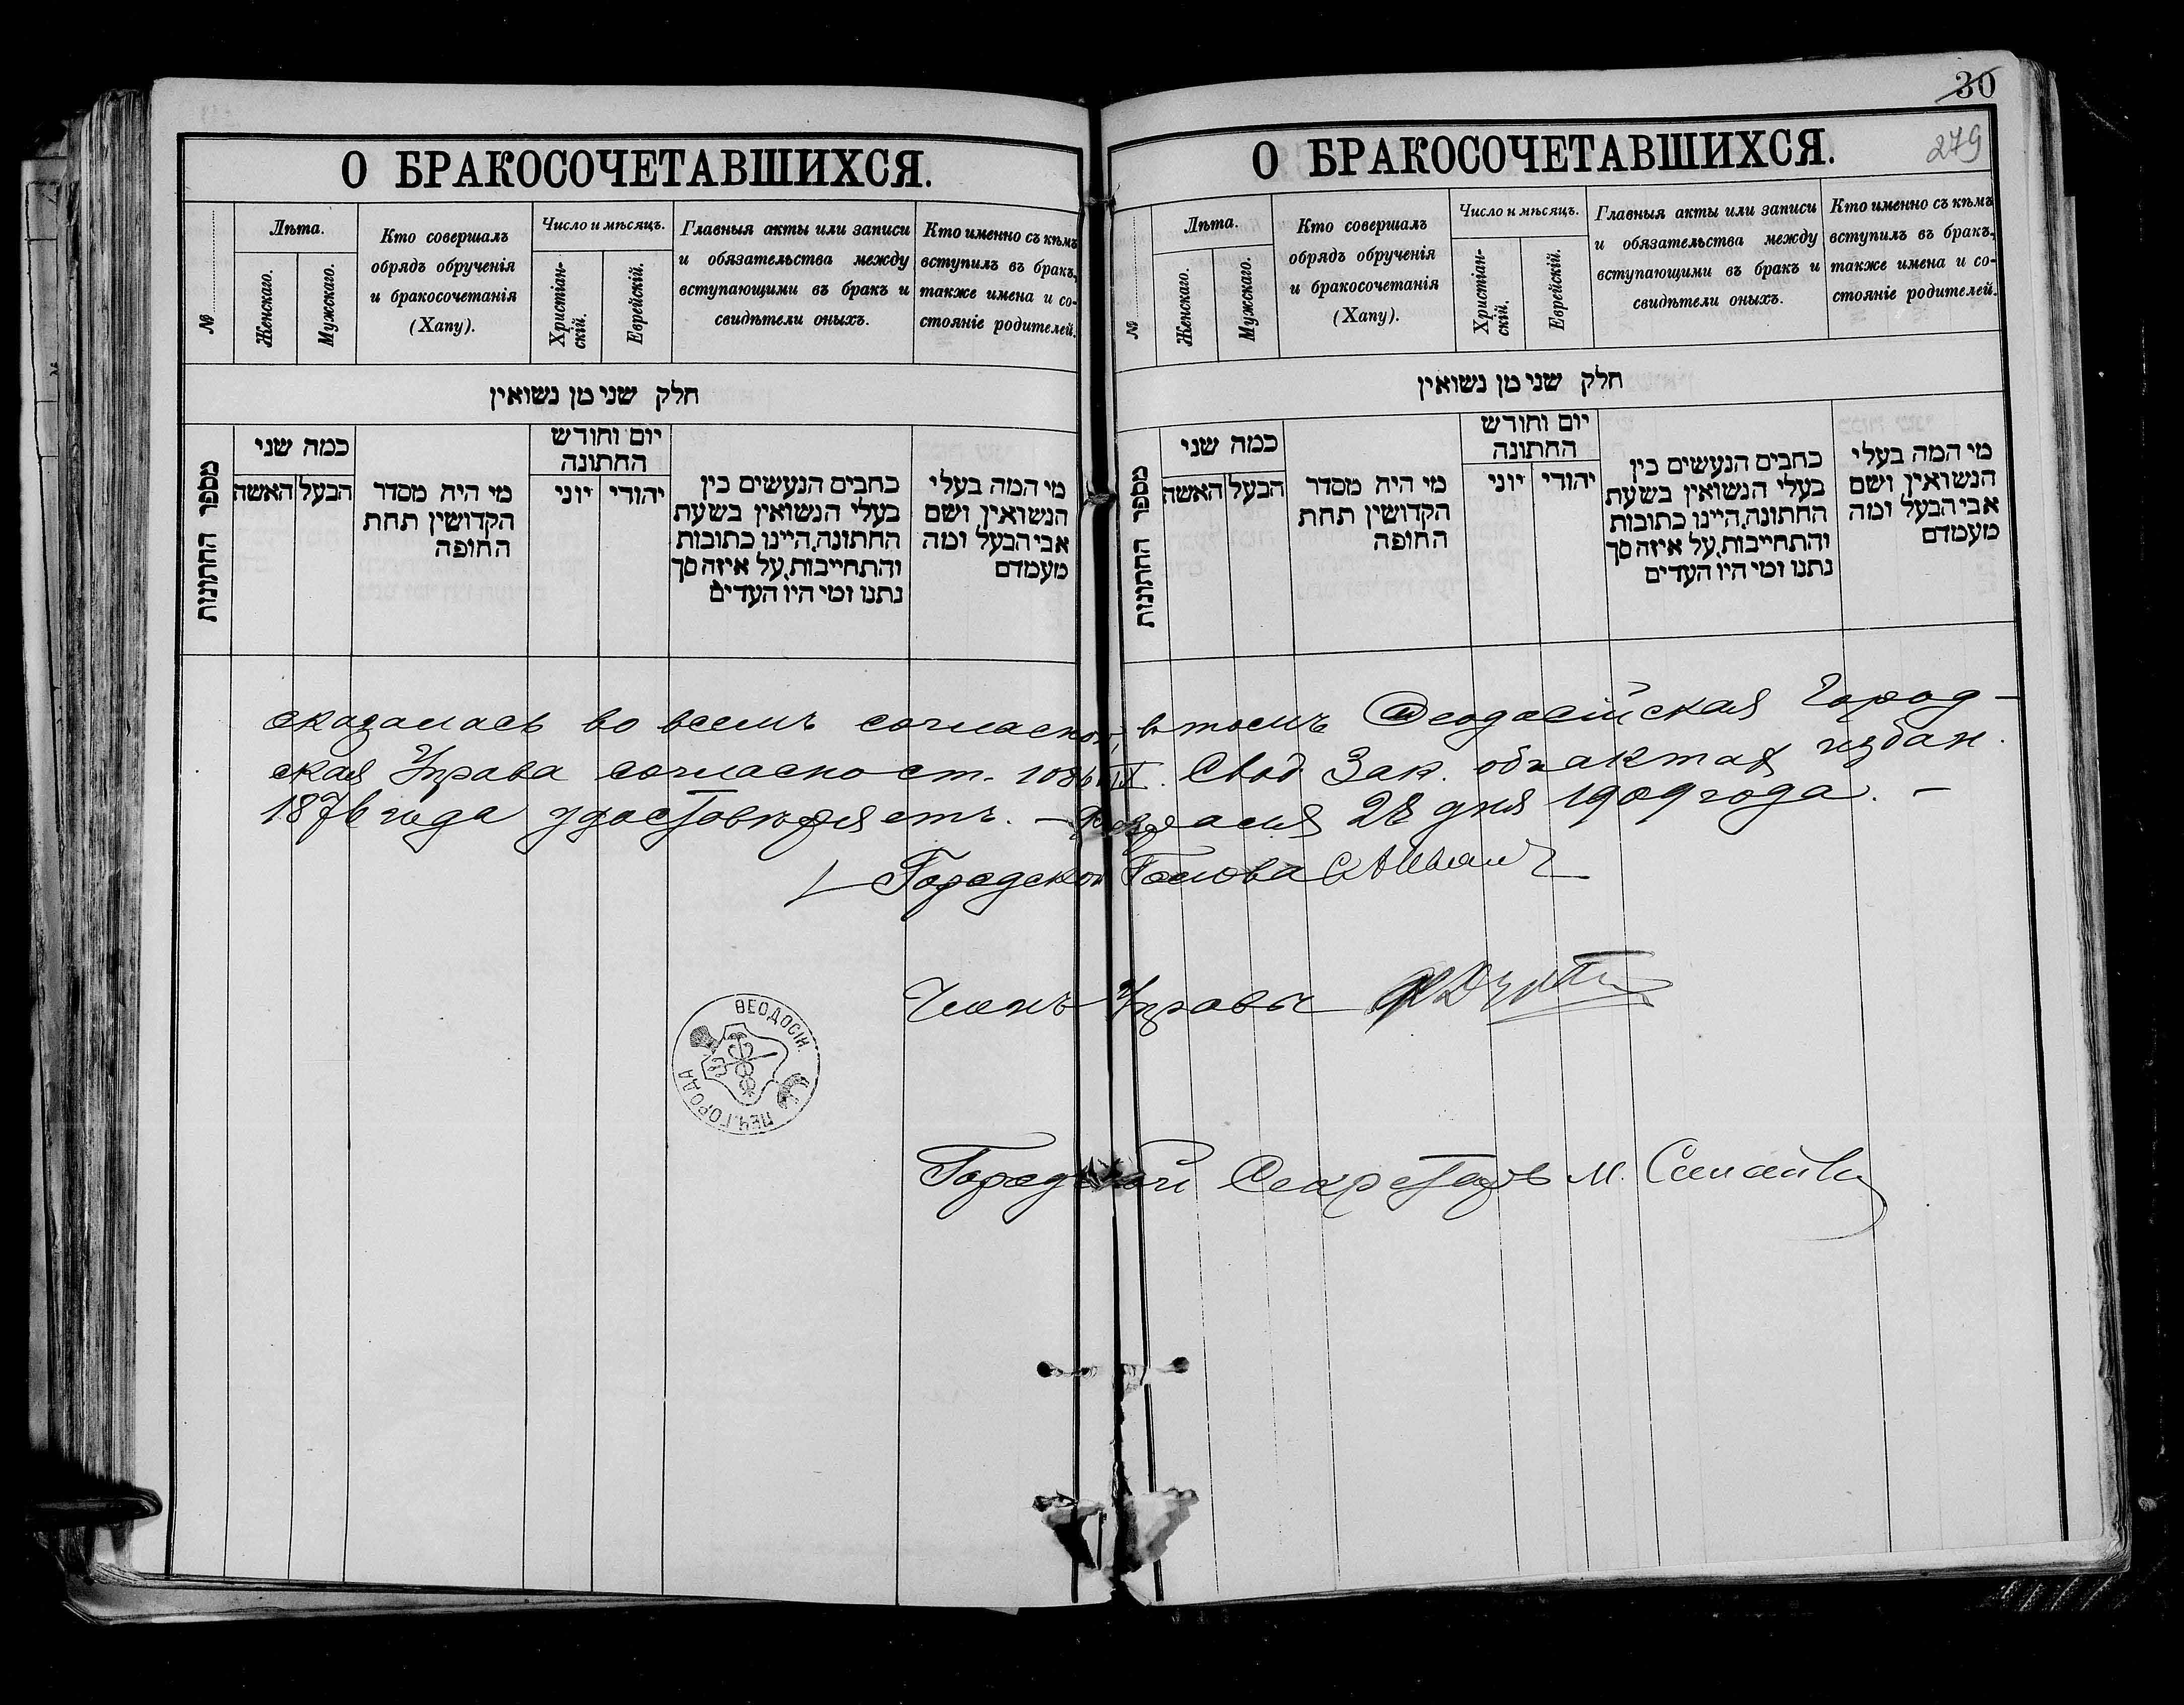 О БРАКОСОЧЕТАВШИХСЯ.
№
Лѣта.
Женскаго.
Мужскаго.
Кто совершалъ
обрядъ обрученія
и бракосочетанія
(Хапу).
Число и мѣсяцъ.
Христіан-
скій.
Еврейскій.
Главныя акты или записи
и обязательства между
вступающими въ бракъ и
свидѣтели оныхъ.
Кто именно съ кѣмъ
вступилъ въ бракъ,
также имена и со-
стояніе родителей.
חלק שני מן נשואין
מספר החתונות
כמה שני
האשה
הבעל
מי היה מסדר
הקדושין תחת
החופה
יום וחודש
החתונה
יוני
יהודי
כתבים הנעשים בין
בעלי הנשואין בשעת
החתונה,היינו כתובות
והתחייבות,על איזה סך
נתנו ומי היו העדים
מי המה בעלי
הנשואין ושם
אבי הבעל ומה
מעמדם
30
279
О БРАКОСОЧЕТАВШИХСЯ.
№
Лѣта.
Женскаго.
Мужскаго.
Кто совершалъ
обрядъ обрученія
и бракосочетанія
(Хапу).
Число и мѣсяцъ.
Христіан-
скій.
Еврейскій.
Главныя акты или записи
и обязательства между
вступающими въ бракъ и
свидѣтели оныхъ.
Кто именно съ кѣмъ
вступилъ въ бракъ,
также имена и со-
стояніе родителей.
חלק שני מן נשואין
מספר החתונות
כמה שני
האשה
הבעל
מי היה מסדר
הקדושין תחת
החופה
יום וחודש
החתונה
יוני
יהודי
כתבים הנעשים בין
בעלי הנשואין בשעת
החתונה,היינו כתובות
והתחייבות,על איזה סך
נתנו ומי היו העדים
מי המה בעלי
הנשואין ושם
אבי הבעל ומה
מעמדם
сказалась во всемъ согласною, въ томъ Ѳеодосійская Город-
ская Управа согласно ст. IX. Свод. Зак. объ актах издан.
1876 года удостовѣряетъ. — 28 дня 1909 года. —
Городской Голова
Членъ Управы
ѲЕОДОСІИ. ПЕЧ. ГОРОДА
Городской Секретарь М.